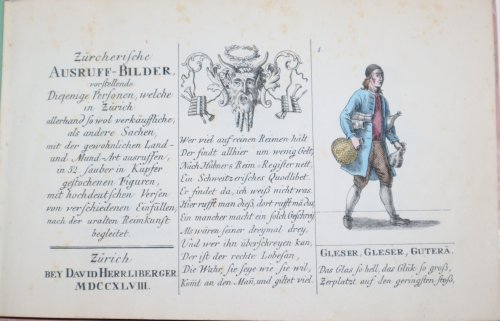 Zürcherische
AUSRUFF-BILDER,
vorstellende
Diejenige Personen, welche
in Zürich
allerhand so wol verkäuffliche,
als andere Sachen,
mit der gewohnlichen Land-
und Mund-Art ausruffen,
in 52 sauber in Kupfer
gestochenen Figuren,
mit hochdeutschen Versen
von verschiedenen Einfällen,
nach der uralten Reimkunst
begleitet.
Zürich
BEY DAVID HERRLIBERGER
MDCCXLVIII.
Wer viel auf reinen Reimen hält
Der findt allhier um wenig Gelt,
Nach Hübners Reim-Register nett
Ein Schweitzerisches Quodlibet.
Er findet da, ich weiß nicht was.
Hier rufft man dieß, dort rufft mã das,
Ein mancher macht ein solch Geschrey
Als wären seiner dreymal drey.
Und wer ihn überschreyen kan,
Der ist der rechte Lobesan,
Die Wahr, sie seye wie sie wil,
Komt an den Mañ, und giltet viel.
1
GLESER, GLESER, GUTERÄ.
Das Glas so hell, das Glük so groß,
Zerplatzt auf den geringsten stoß,